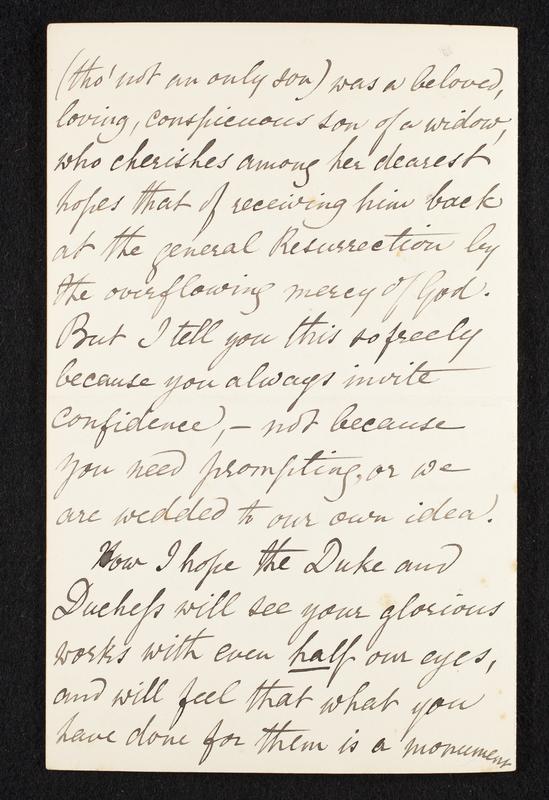 (tho' not an only son) was a beloved,
loving, conspicuous son of a widow,
who cherishes among her dearest
hopes that of receiving him back
at the general Resurrection by
the overflowing mercy of God.
But I tell you this so freely
because you always invite
confidence, – not because
you need prompting, or we
are wedded to our own idea.
Now I hope the Duke and
Duchess will see your glorious
works with even half our eyes,
and will feel that what you
have done for them is a monument